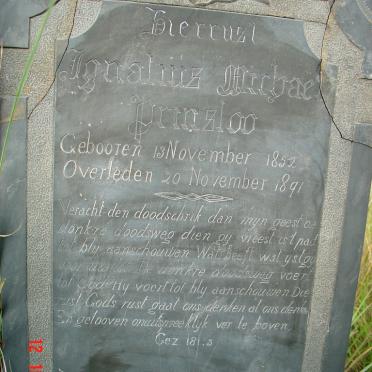 Hier rust
Ignatuis Michael
Prinsloo
Gebooren 13 November 1852
Overleden 20 November 1891
Veracht den doodschrik dan mijn geest
donkre doodsweg dien gy vreest is t pad
bly aanschouwen Wat heeft
donkre doodsweg voert
tot Gods voert tot bly aanschouwen Die
rust Gods rust gaat ons denken al ons denken
En gelooven onuitspreeklyk ver te boven
Gez 181.3
12 1